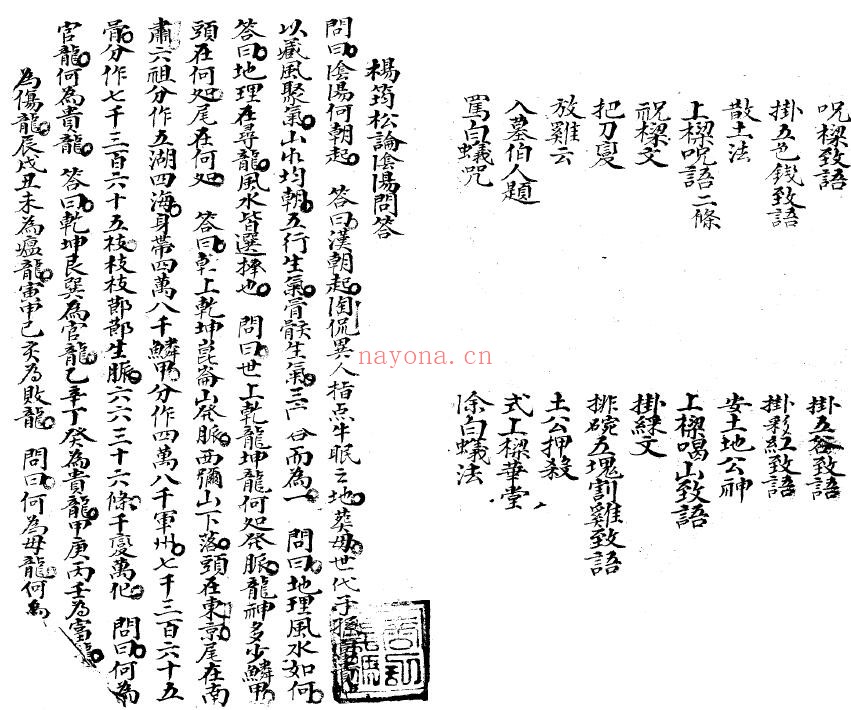 呪樑致語
掛五色錢致語
散土法
上樑呪語二條
祝樑文
把刀叟
放雞云
入墓伯人題
罵白蟻咒
掛五谷致語
掛彩紅致語
安土地公神
上樑喝山致語
掛綵文
排碗五塊割雞致語
土公押殺
式上樑華堂
除白蟻法
楊筠松論陰陽問答
問曰陰陽何朝起 答曰漢朝起陶侃異人指点牛眠之地葬母世代子孫
以藏風聚氣山水均朝五行生氣骨骸生氣三户合而為一 問曰地理風水如何
答曰地理在尋龍風水皆選擇也 問曰世上乾龍坤龍何処發脈龍神多少鱗甲
頭在何処尾在何処 答曰乾上乾坤崑崙山發脈西彌山下落頭在東京尾在南
肅六祖分作五湖四海身帶四萬八千鱗甲分作四萬八千軍州七千三百六十五
骨分作七千三百六十五枝枝枝節節生脈六六三十六條千變萬化 問曰何為
官龍何為貴龍 答曰乾坤艮巽為官龍乙辛丁癸為貴龍甲庚丙壬為富龍
為傷龍辰戌丑未為瘟龍寅申巳亥為敗龍 問曰何為母龍何為
nayona.cn